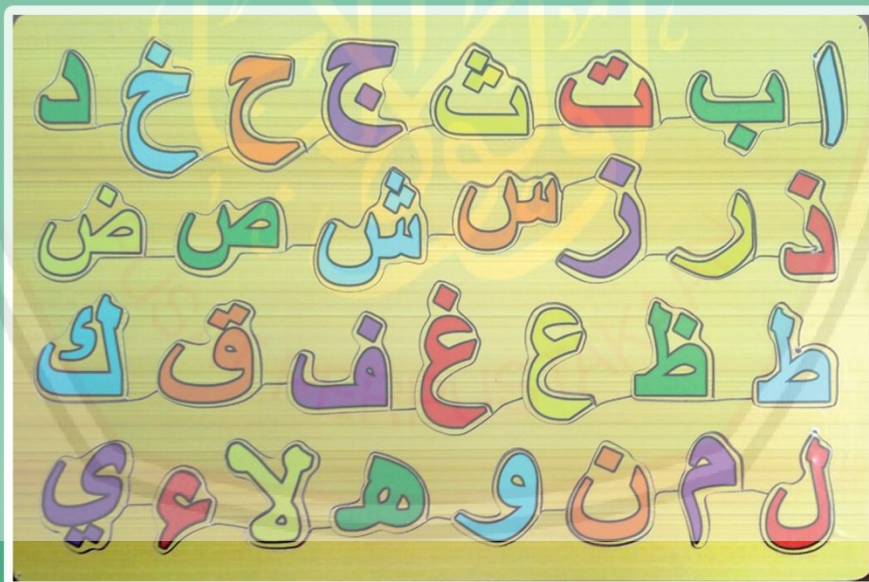 ا ب ت ث ج ح خ د
ذ ر ز س ش ص ض
ط ظ ع غ ف ق ك
ل م ن و ه لا ء ي